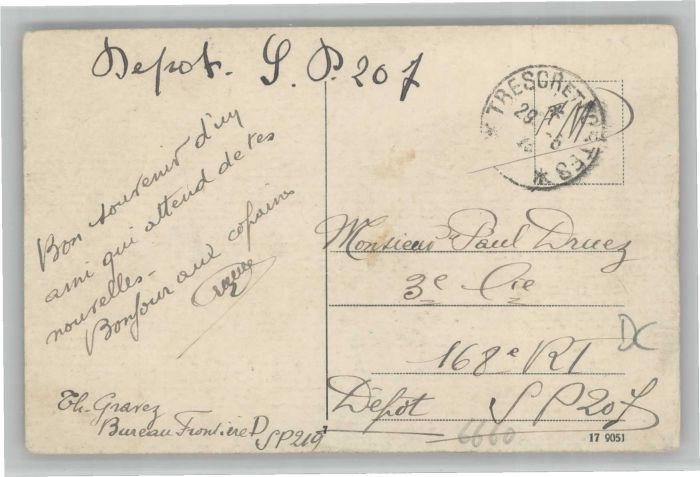 Depot. S. P. 207
* TRESOR ET POSTES *
29
Bon souvenir d'un
ami qui attend de tes
nouvelles.
Bonjour aux copains
Monsieur Paul Druez
3e Cie
168e RI
Dépôt SP 207
DC
Th. Gravez
Bureau Frontière D
SP 219
6660
17 9051